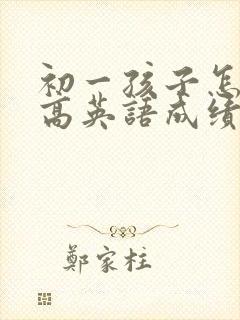 初一孩子怎
高英語成績
鄭家柱